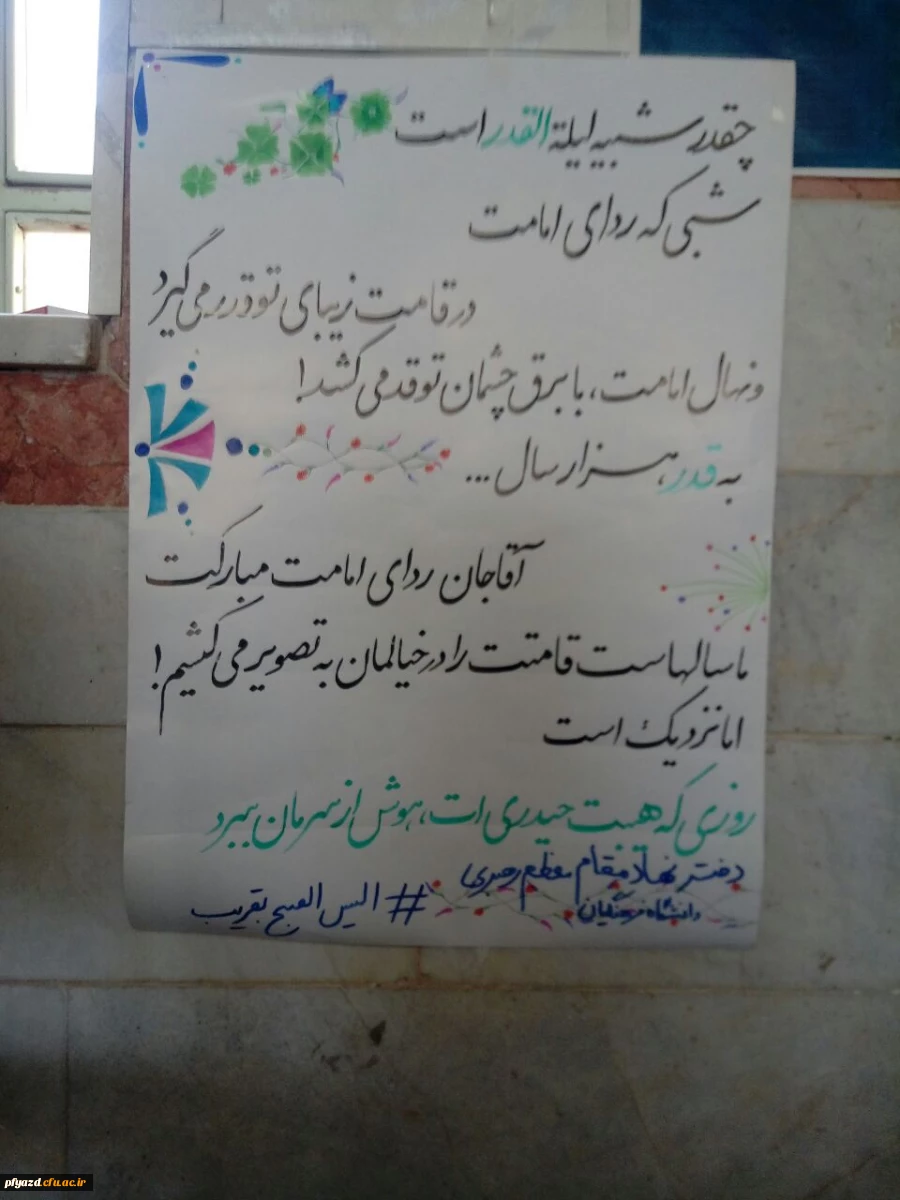 چقدر شبیه لیلة القدر است
شبی که ردای امامت
در قامت زیبای تو در بر می گیرد
ونهال امامت، با برق چشمان تو قد می کشد!
به قدر، هزار سال ...
آقاجان ردای امامت مبارکت
ما سالهاست قامتت را در خیالمان به تصویر می کشیم!
اما نزدیک است
روزی که هیبت حیدری ات، هوش از سرمان ببرد
دفتر نهاد مقام معظم رهبری
دانشگاه فرهنگیان
# الیس الصبح بقریب
pfyazd.cfu.ac.ir